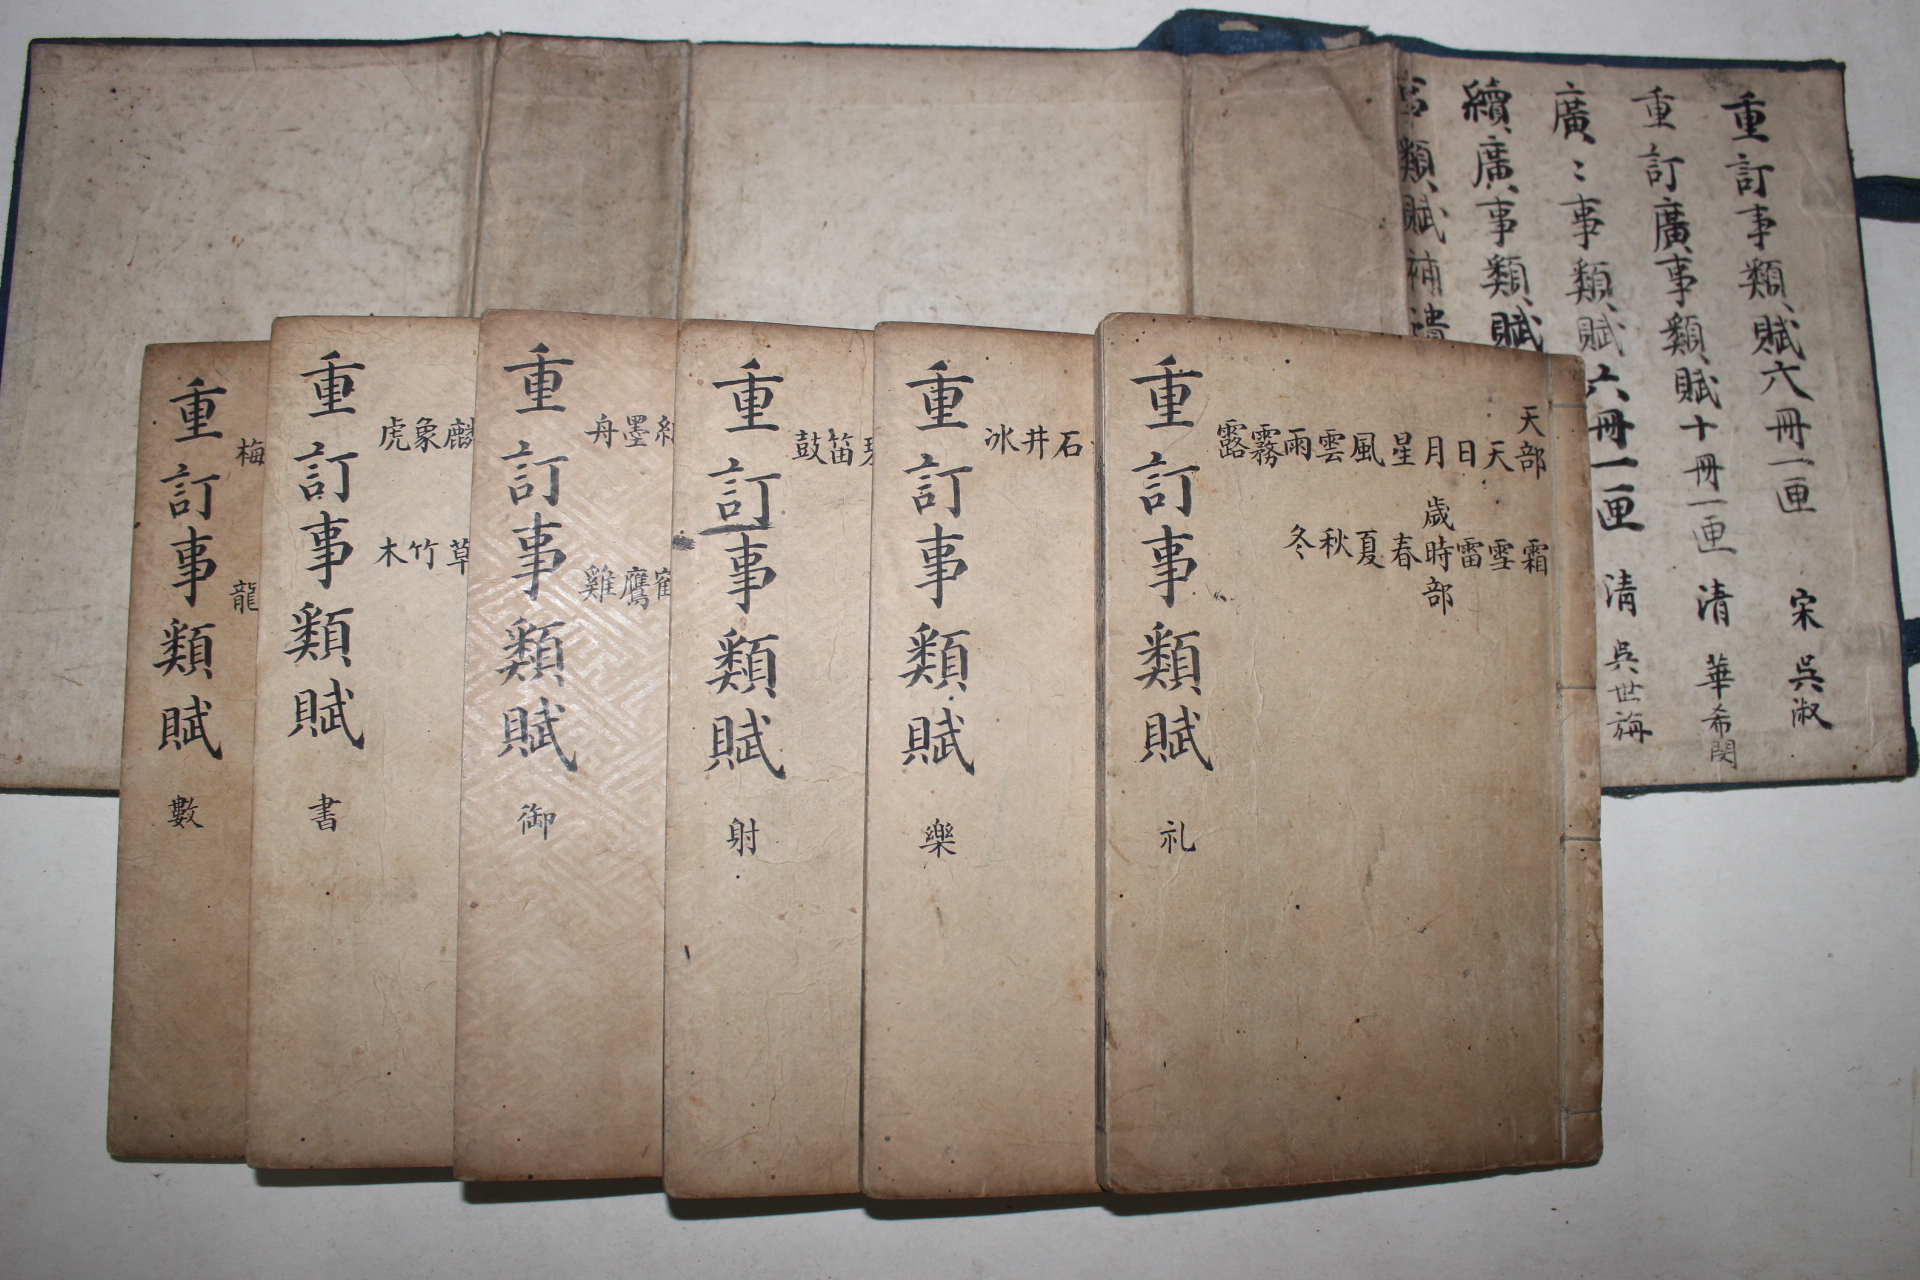 重訂事類賦六冊一匣 宋 吳淑
重訂廣事類賦十冊一匣 清 華希閔
廣〻事類賦六冊一匣 清 吳世旃
續廣事類賦
事類賦補遺
天部 霜
天 雪
日 雷
月 歳時部
星 春
風 夏
雲 秋
雨 冬
霧
露
重訂事類賦 礼
石
井
冰
重訂事類賦 樂
笛
鼓
重訂事類賦 射
墨 鷹
舟 雞
重訂事類賦 御
麟 草
象 竹
虎 木
重訂事類賦 書
梅 龍
重訂事類賦 數